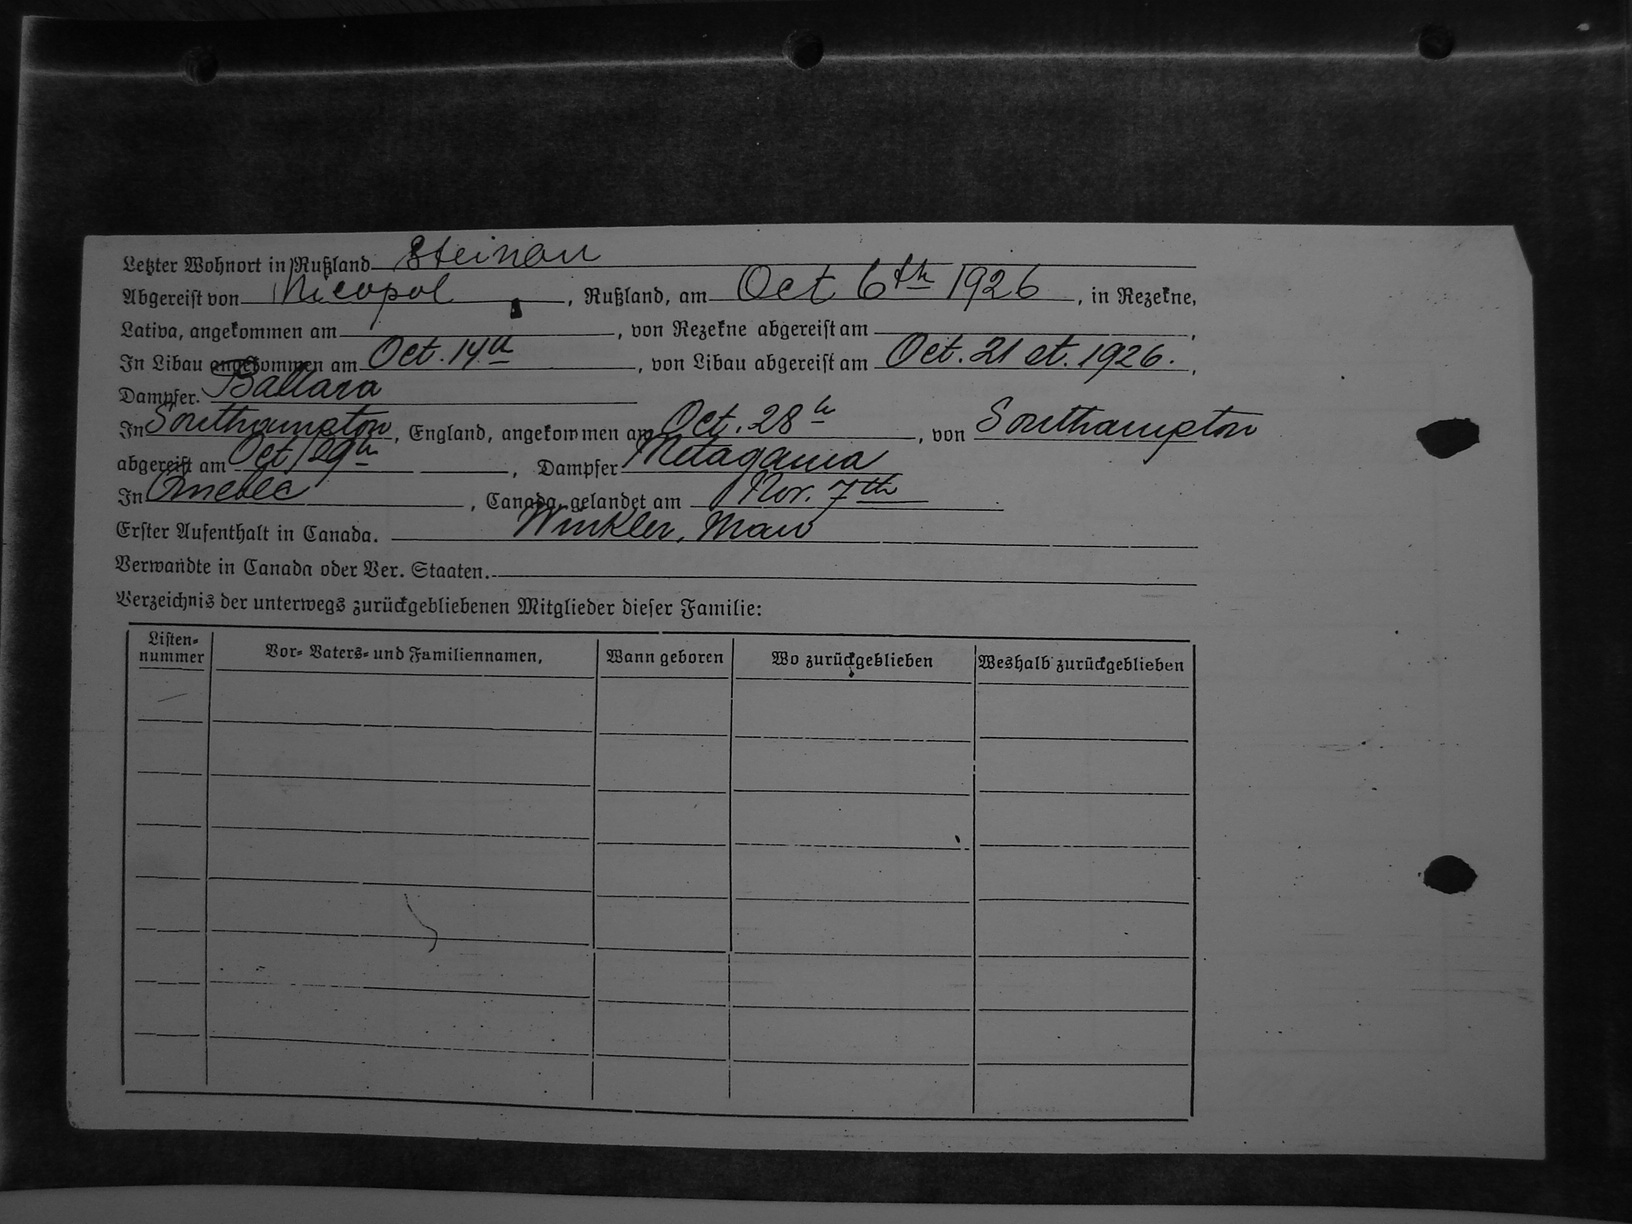 Letzter Wohnort in Rußland Steinau
Abgereist von Nicopol, Rußland, am Oct 6th 1926, in Rezekne,
Lativa, angekommen am , von Rezekne abgereist am ,
In Libau angekommen am Oct. 14th, von Libau abgereist am Oct. 21 st. 1926.,
Dampfer. Baltara
In Southampton, England, angekommen am Oct. 28th, von Southampton
abgereist am Oct 29th, Dampfer Metagama
In Quebec, Canada, gelandet am Nov. 7th
Erster Aufenthalt in Canada. Winkler, Man
Verwandte in Canada oder Ver. Staaten.
Verzeichnis der unterwegs zurückgebliebenen Mitglieder dieser Familie:
Listen-
nummer Vor- Vaters- und Familiennamen, Wann geboren Wo zurückgeblieben Weshalb zurückgeblieben